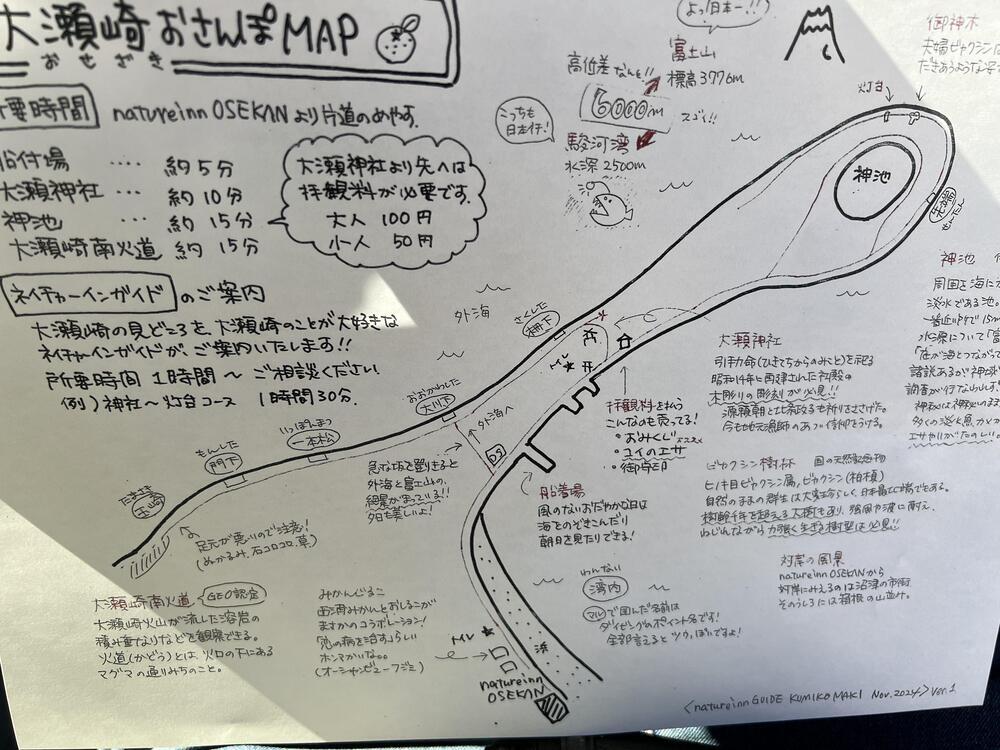 大瀬崎おさんぽMAP
おせざき
要時間
natureinn OSEKANより片道のめやす.
船付場 ‥‥ 約5分
大瀬神社 ‥‥ 約10分
神池 ‥‥ 約15分
大瀬崎南火道 約15分
大瀬神社より先へは
拝観料が必要です.
大人 100円
小人 50円
ネイチャーインガイドのご案内
大瀬崎の見どころを、大瀬崎のことが大好きな
ネイチャーインガイドが、ご案内いたします!!
所要時間 1時間〜 ご相談ください
例)神社〜灯台コース 1時間30分.
よっ!日本一!!
富士山
標高3776m
高低差なんと!!
6000m
スゴイ!!
こっちも
日本一!
駿河湾
水深2500m
御神木
夫婦ビャクシンは
灯台
神池
先端
せんたん
外海
さくした
柵下
おおかわした
大川下
外海へ
いっぽんまつ
一本松
もんした
門下
たまさき
玉崎
トイレ
足元が悪いので注意!
(ぬかるみ、石コロコロ、草)
急な坂を登りきると
外海と富士山の、
絶景が待っている!!
夕日も美しいよ!
拝観料を払う
こんなのも売ってる!
・おみくじ
・コイのエサ
・御朱印
船着場
風のないおだやかな日は
海をのぞきこんだり
朝日を見たりできる!
大瀬神社
引手力命(ひきてちからのみこと)を祀る
昭和14年に再建された社殿の
木彫りの彫刻が必見!!
源頼朝と北条政子も祈りをささげた。
今も地元漁師のあつい信仰をうける。
神池
周囲を海に
淡水である池。
水源について「富
「底が海とつながって
諸説あるが神域
多くの淡水魚が
エサやりがたのしい。
ビャクシン樹林 国の天然記念物
ヒノキ目ビャクシン属、ビャクシン(柏槙)
自然のままの群生は大変めずらしく、日本最北端でもある。
樹齢千年を超える大樹もあり、強風や波に耐え、
ねじれながら力強く生きる樹型は必見!!
対岸の風景
natureinn OSEKANから
対岸にみえるのは沼津の市街
そのうしろには箱根の山並み。
わんない
湾内
マルで囲んだ名前は
ダイビングのポイント名です!
全部言えるとツウっぽいですよ!
大瀬崎南火道 GEO認定
大瀬崎火山が流した溶岩の
積み重なりなどを観察できる。
火道(かどう)とは、火口の下にある
マグマの通りみちのこと。
みかんじるこ
西浦みかんとおしるこが
まさかのコラボレーション!
恋の病を治すらしい
ホンマかいな。
(オーシャンビューフジミ)
トイレ
浜
natureinn
OSEKAN
<natureinn GUIDE KUMIKO MAKI Nov.2024> Ver.1